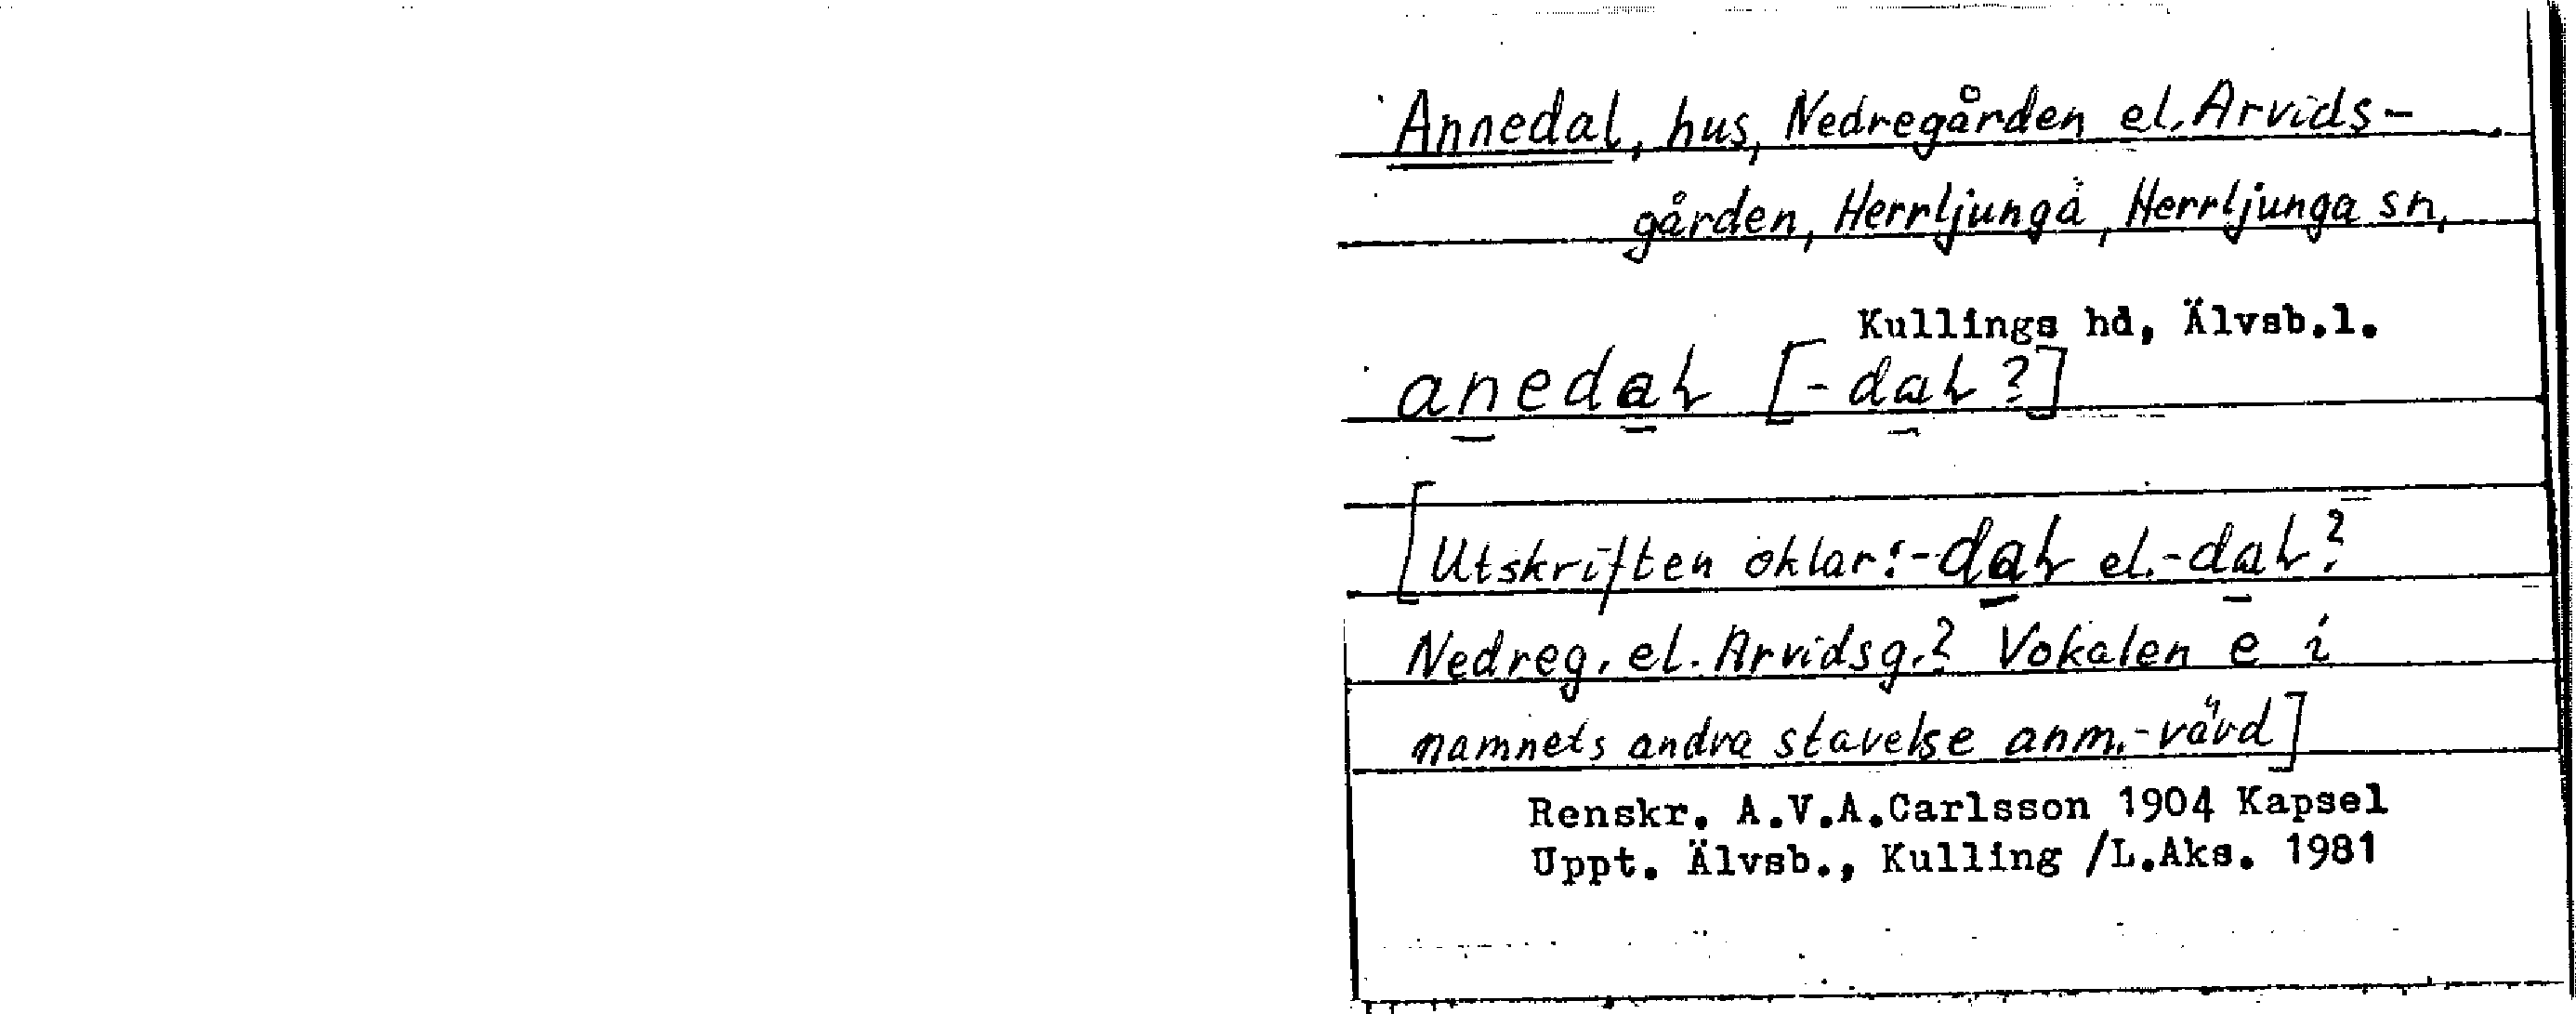 Annedal, hus, Nedregården el. Arvids-
gården, Herrljunga, Herrljunga sn,
Kullings hd, Älvsb.l.
a̱ṉeda̱ɫ [-da̱ɫ?]
[Utskriften oklar: -da̱ɫ el. -da̱ɫ?
Nedreg. el. Arvidsg.? Vokalen e i
namnets andra stavelse anm.-värd]
Renskr. A.V.A.Carlsson 1904 Kapsel
Uppt. Älvsb., Kulling /L.Aks. 1981